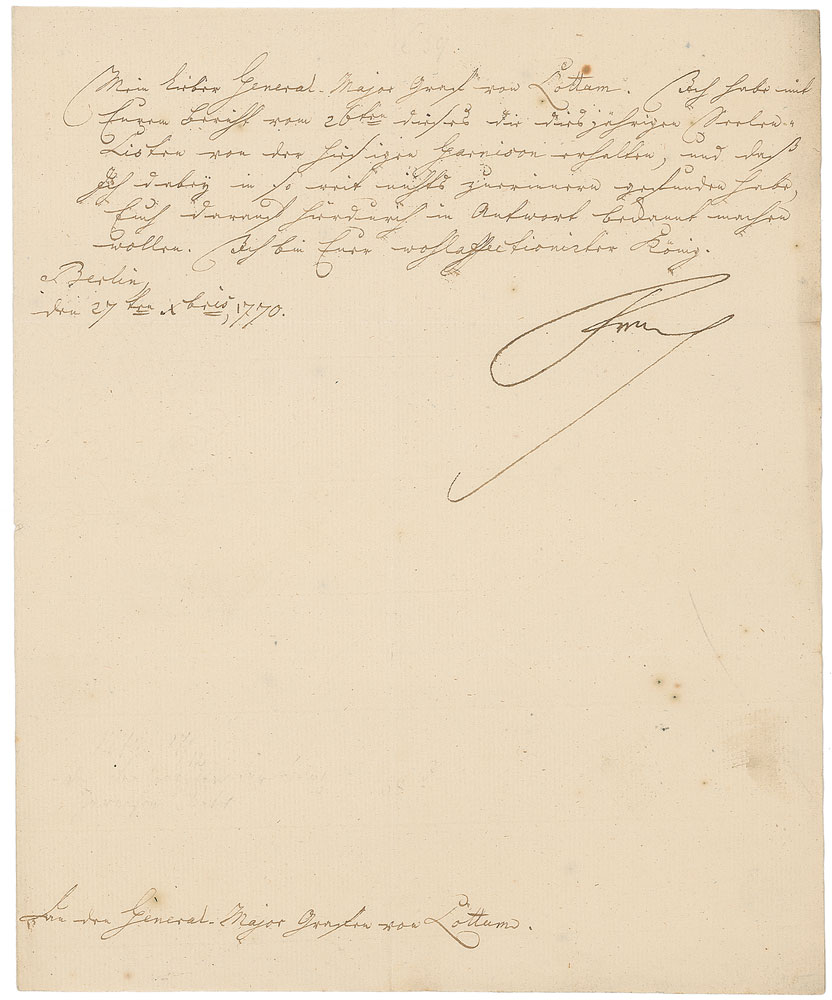 Mein lieber General-Major Graf von Lottum. Ich habe mit
Eurem Bericht vom 26ten dieses die diesjährigen Seelen-
Listen von der hiesigen Garnison erhalten, und daß
Ich dabey in so weit nichts zuerinnern gefunden habe,
Euch darauf hierdurch in Antwort bekannt machen
wollen. Ich bin Euer wohlaffectionirter König.
Berlin,
den 27ten Xbris, 1770.
An den General-Major Grafen von Lottum.